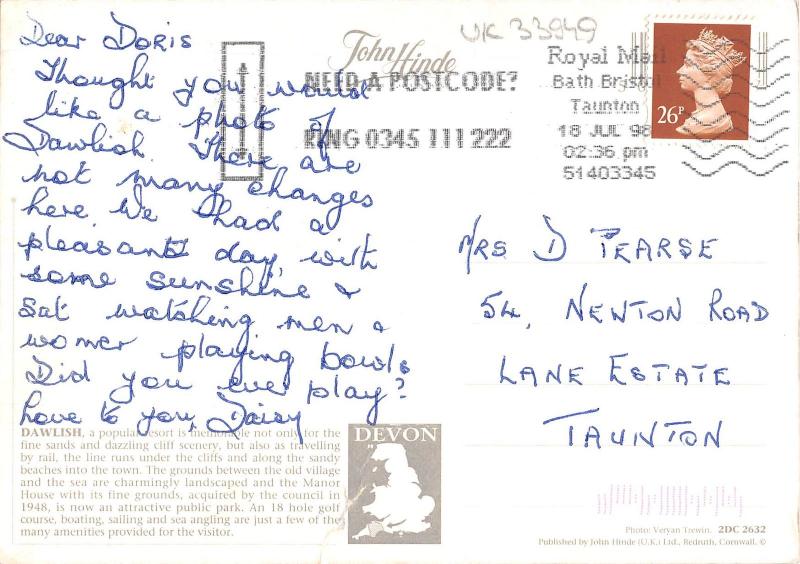 Dear Doris
Thought you would
like a photo of
Dawlish. There are
not many changes
here. We had a
pleasant day, with
some sunshine &
sat watching men &
women playing bowls
Did you ever play?
Love to you, Daisy
UK 33949
John Hinde
NEED A POSTCODE?
RING 0345 111 222
Royal Mail
Bath Bristol
Taunton
18 JUL 98
02:36 pm
51403345
26P
MRS D PEARSE
54, NEWTON ROAD
LANE ESTATE
TAUNTON
DAWLISH, a popular resort is memorable not only for the
fine sands and dazzling cliff scenery, but also as travelling
by rail, the line runs under the cliffs and along the sandy
beaches into the town. The grounds between the old village
and the sea are charmingly landscaped and the Manor
House with its fine grounds, acquired by the council in
1948, is now an attractive public park. An 18 hole golf
course, boating, sailing and sea angling are just a few of the
many amenities provided for the visitor.
DEVON
Photo: Veryan Trewin. 2DC 2632
Published by John Hinde (U.K.) Ltd., Redruth, Cornwall. ©